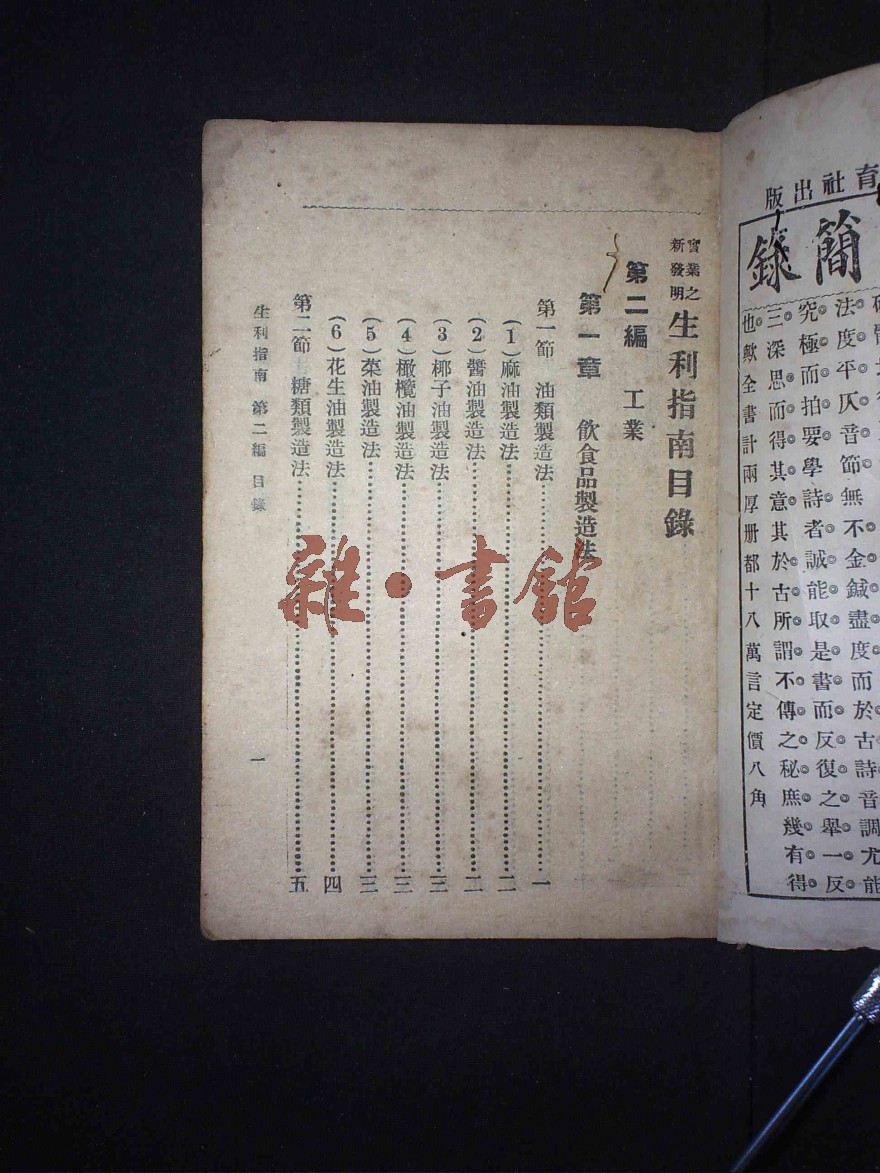 育社出版
簡錄
法度平仄音節無不金鍼盡度而於古詩音調尤能
究極而拍要學詩者誠能取是書而反復之舉一反
三深思而得其意其於古所謂不傳之秘庶幾有得
也歟全書計兩厚册都十八萬言定價八角
實業之新發明生利指南目錄
第二編 工業
第一章 飲食品製造法
第一節 油類製造法……一
(1)麻油製造法……二
(2)醬油製造法……二
(3)椰子油製造法……三
(4)橄欖油製造法……三
(5)菜油製造法……三
(6)花生油製造法……四
第二節 糖類製造法……五
生利指南 第二編 目錄
一
雜·書館